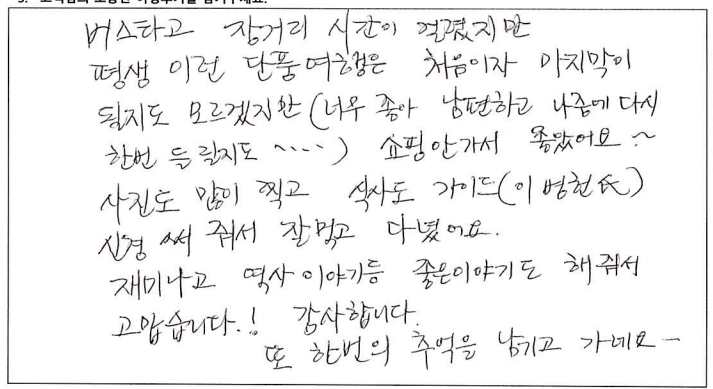 버스타고 장거리 시간이 걸렸지만
평생 이런 단풍여행은 처음이자 마지막이
될지도 모르겠지만 (너무 좋아 남편하고 나중에 다시
한번 들릴지도 ....) 쇼핑안가서 좋았어요 ~
사진도 많이 찍고 식사도 가이드(이병헌氏)
신경 써 줘서 잘먹고 다녔어요.
재미나고 역사이야기등 좋은이야기도 해줘서
고맙습니다.! 감사합니다.
또 한번의 추억을 남기고 가네요 -